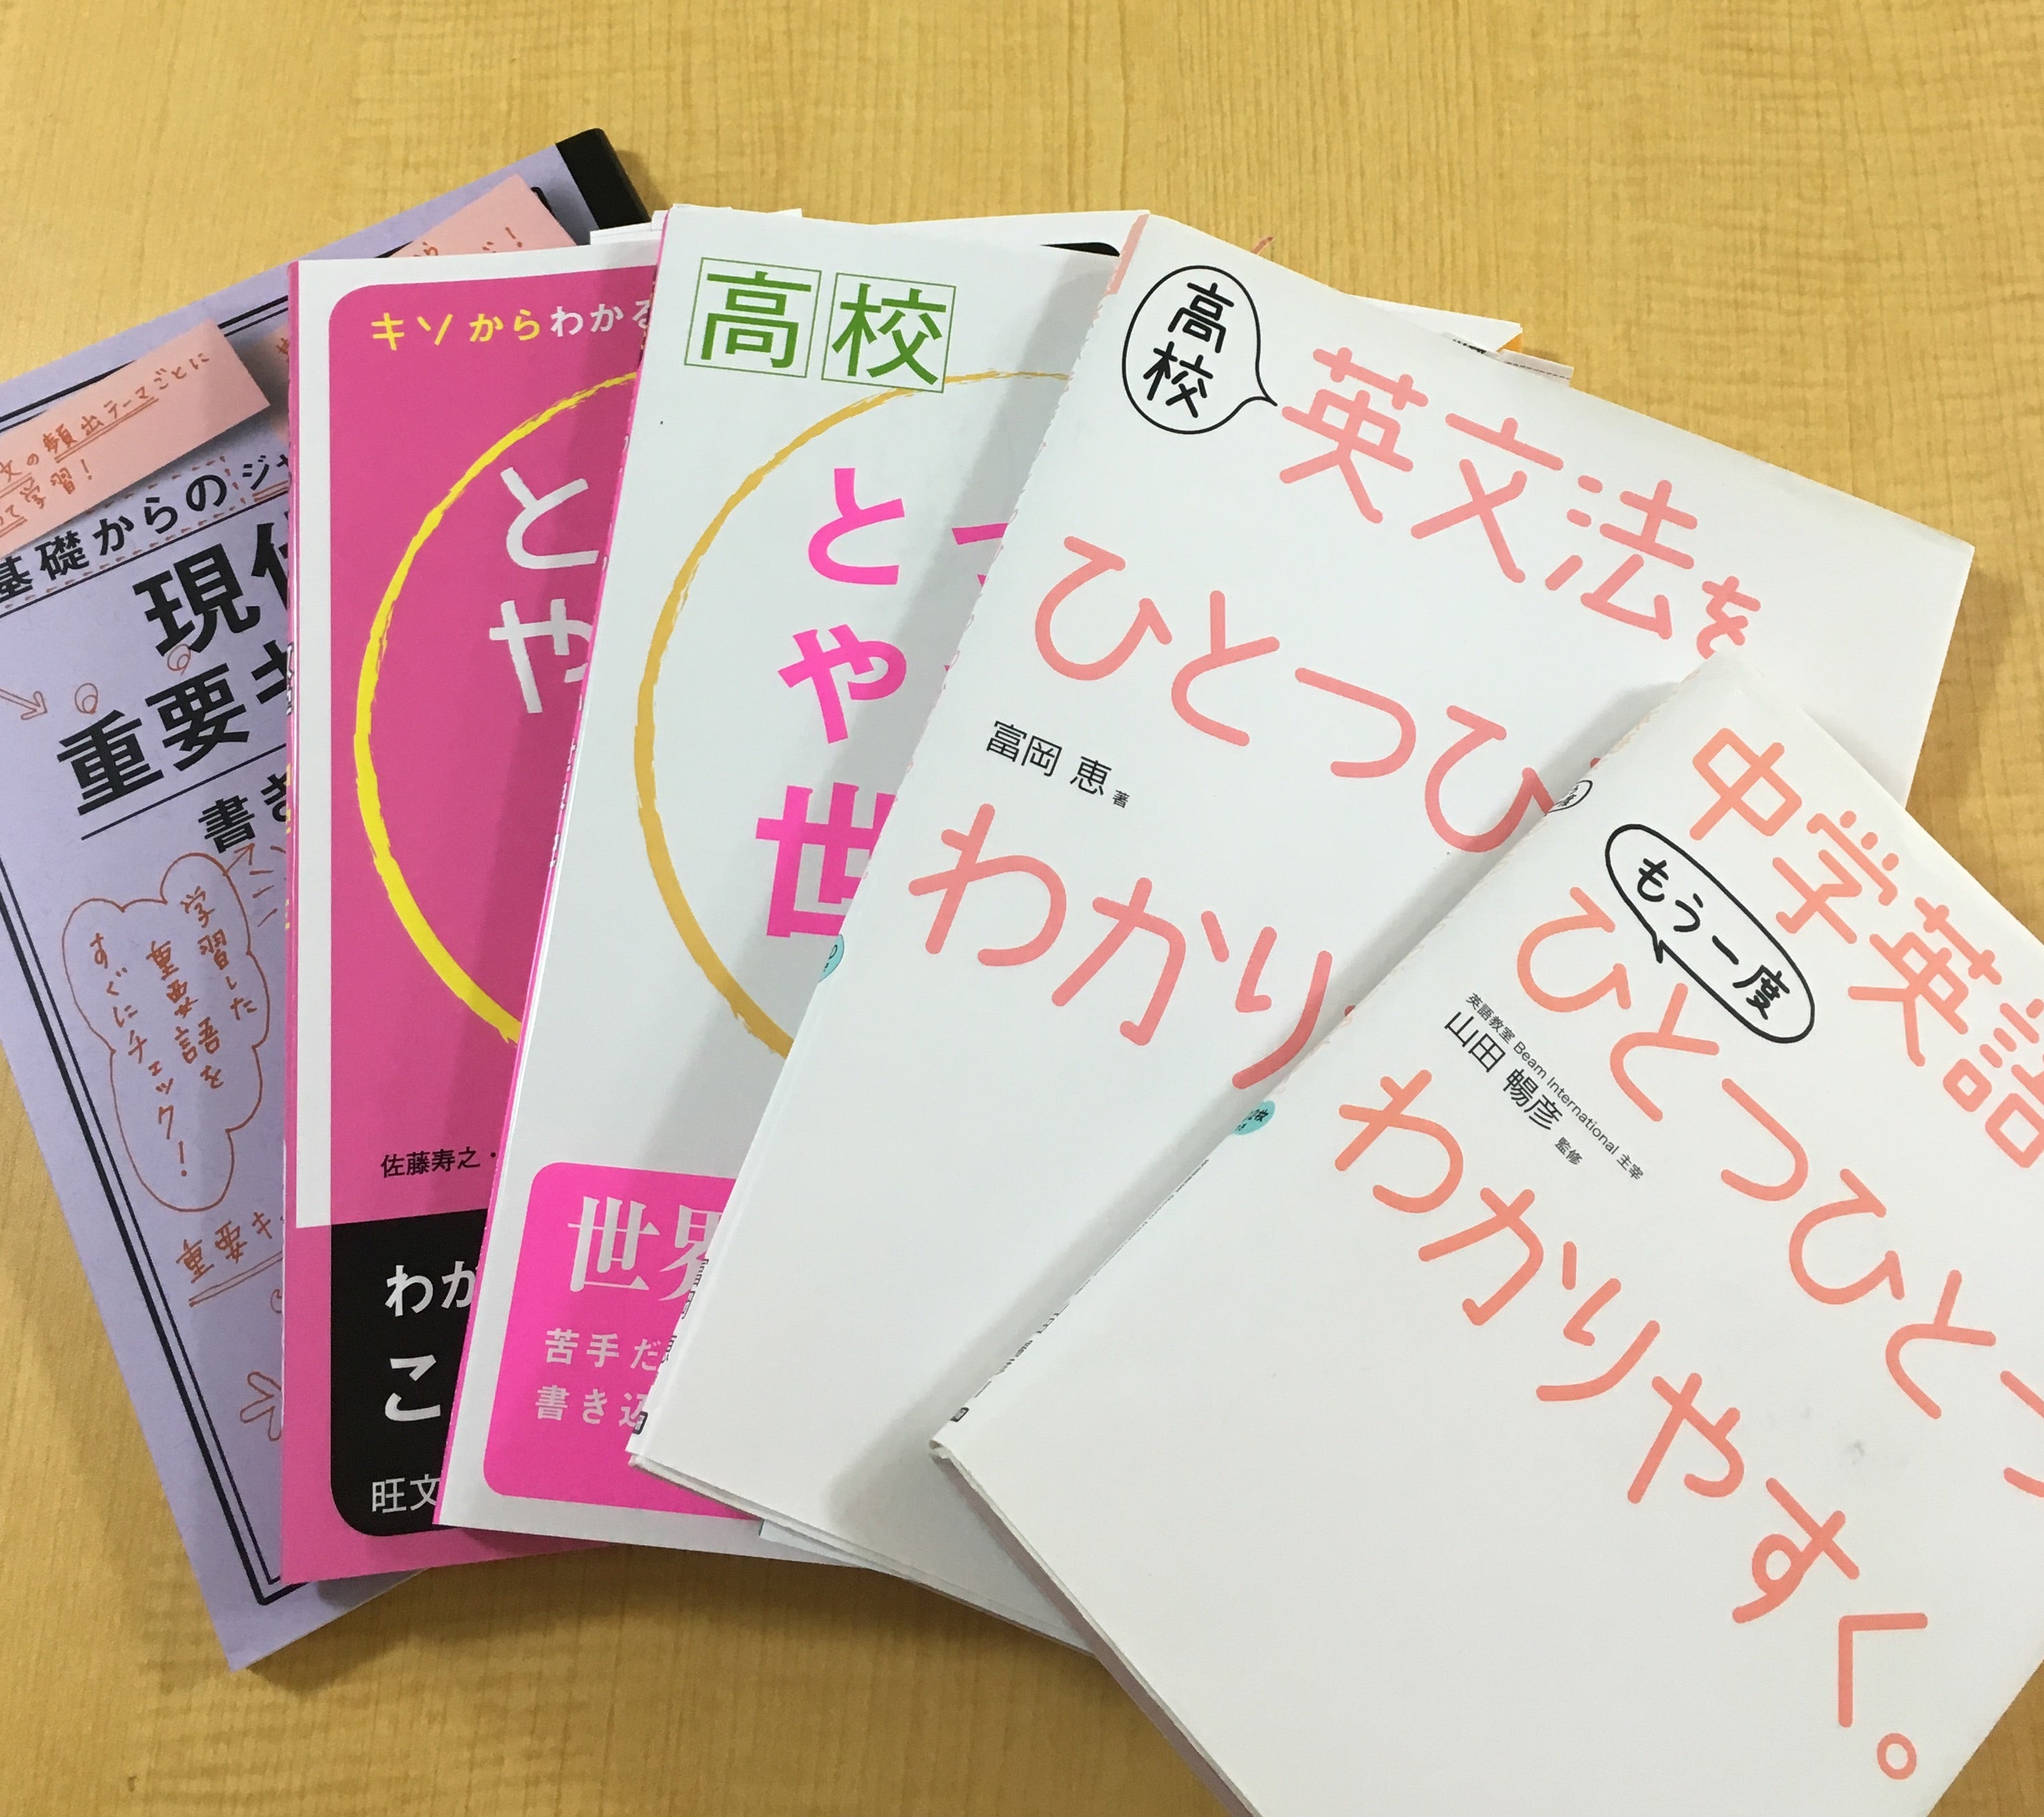 文の頻出テーマごとに
て学習！
基礎からのジャ
現代
重要キ
書き
学習した
重要語を
すぐにチェック！
重要キ
キソからわかる
と
や
佐藤寿之・
わか
こ
旺文
高校
と
や
世
世界
苦手だ
書き込
高校
英文法を
ひとつひ
富岡 恵 著
わかり
中学英語
もう一度
ひとつひとつ
英語教室 Beam International 主宰
山田 暢彦 監修
わかりやすく。